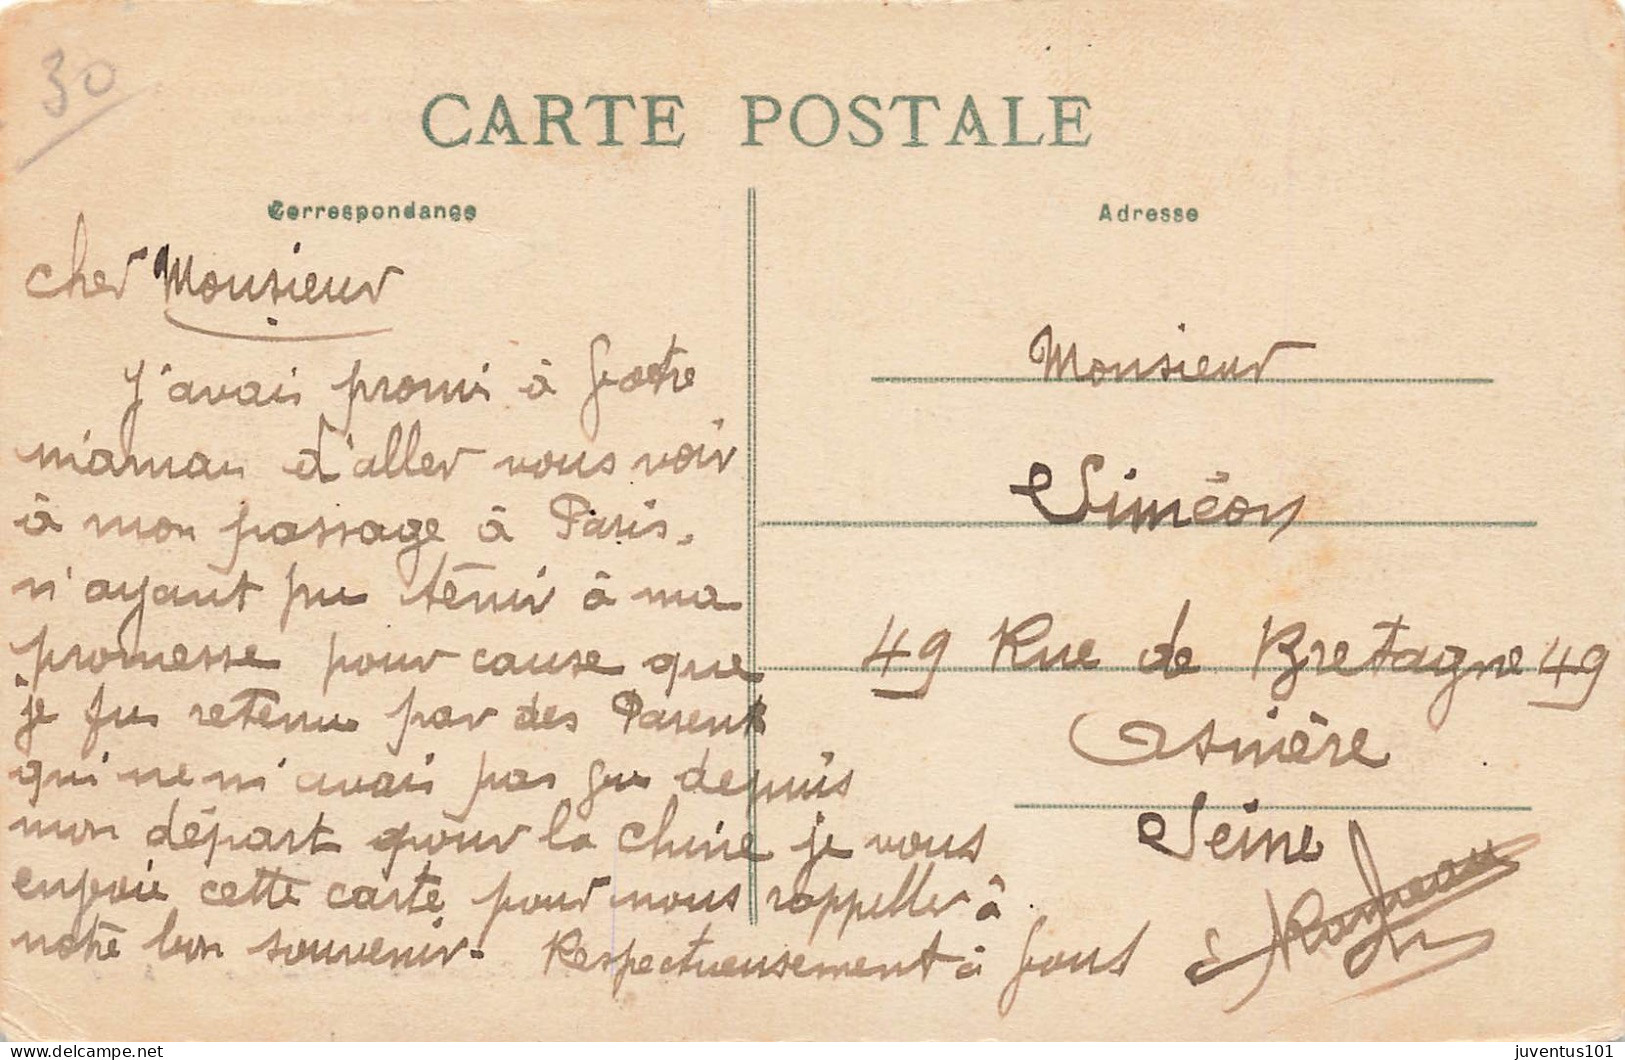 30
CARTE POSTALE
Correspondance
Adresse
cher Monsieur
J'avais promi à Votre
maman d'aller vous voir
à mon passage à Paris.
n'ayant pu tenir à ma
promesse pour cause que
je fus retenu par des Parent
qui ne m'avais pas vu depuis
mon départ pour la Chine je vous
envoie cette carte pour nous rappeller à
notre bon souvenir.
Respectueusement à Vous
Monsieur
Siméon
49 Rue de Bretagne 49
Asnière
Seine
juventus101